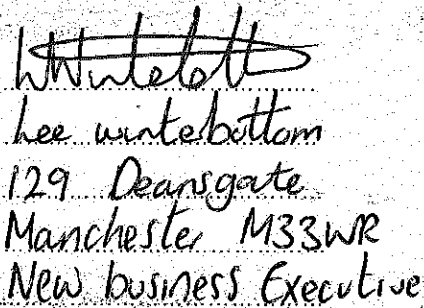 Lee winterbottom
129 Deansgate
Manchester M33WR
New business Executive